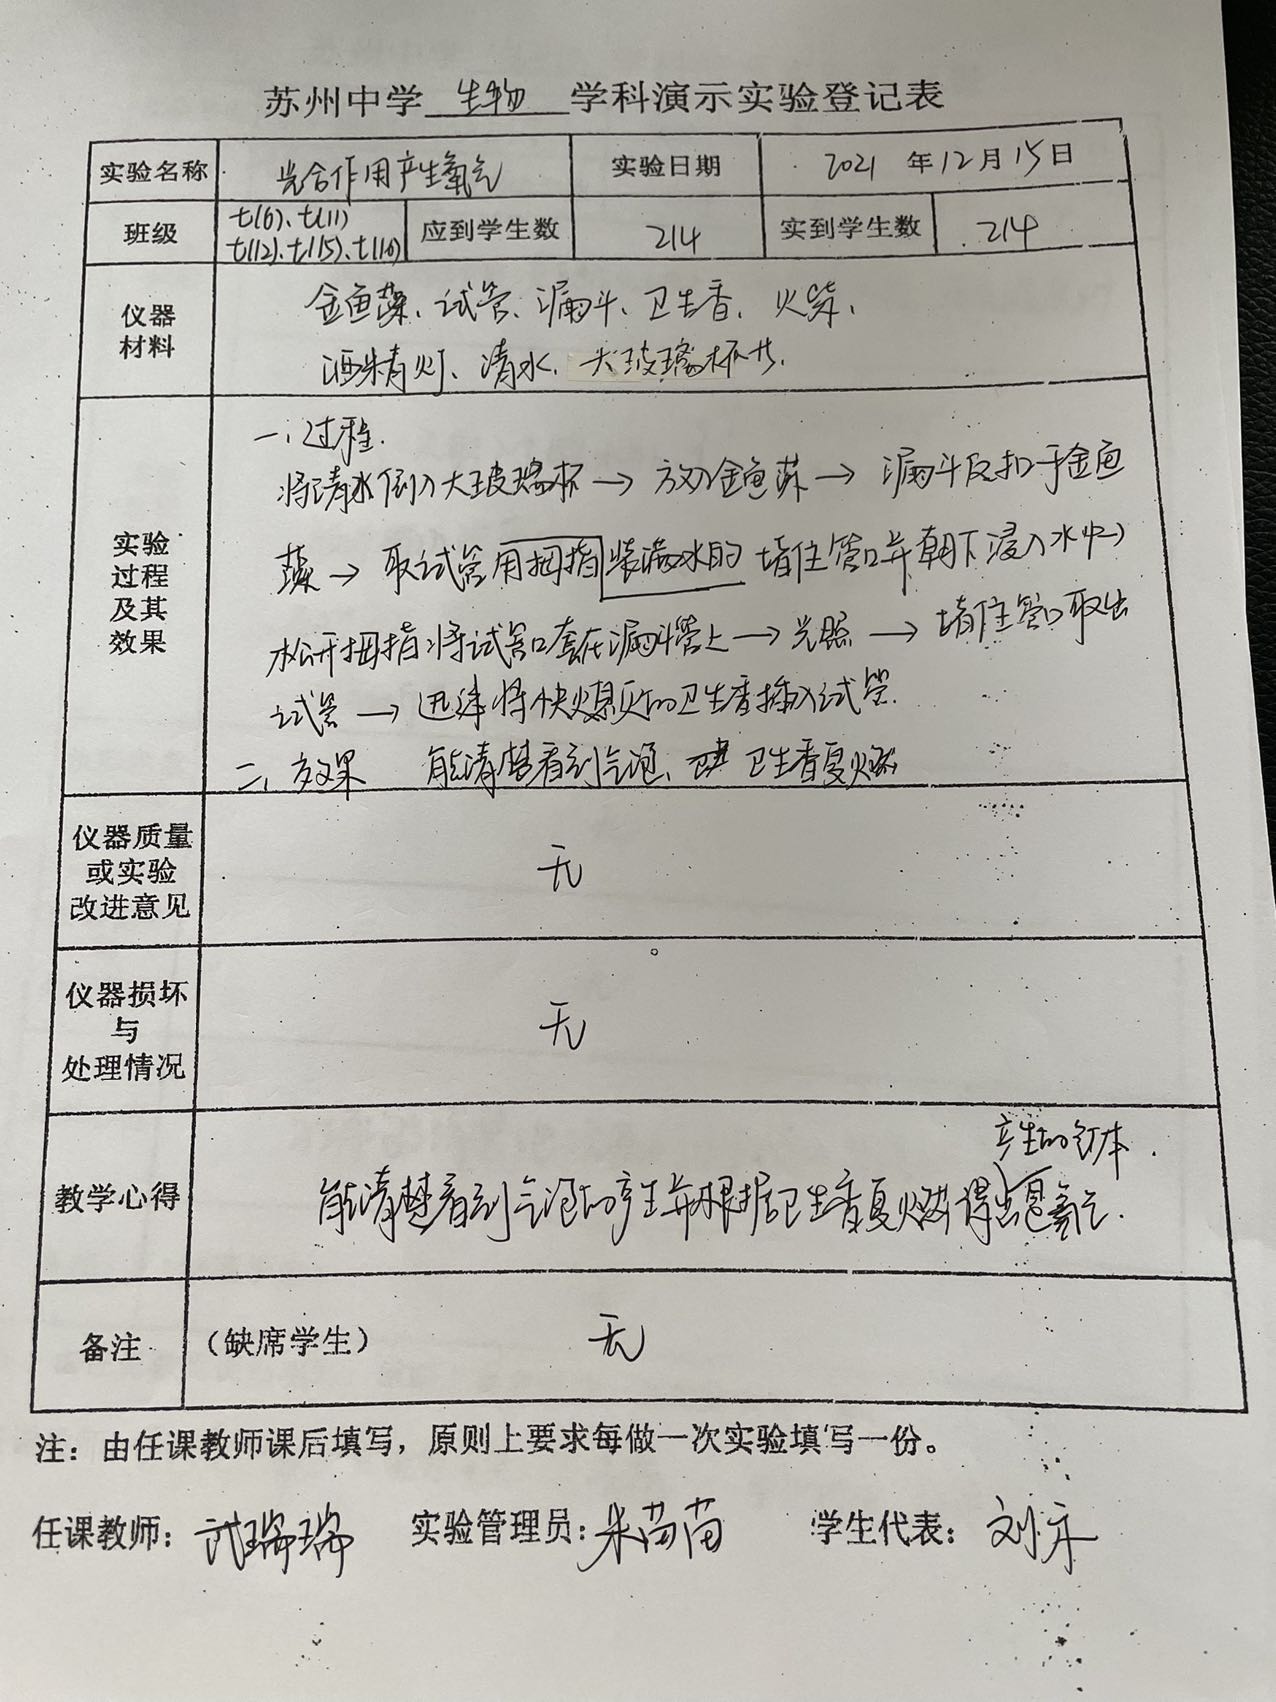 苏州中学 生物 学科演示实验登记表
实验名称 光合作用产生氧气 实验日期 2021 年12月15日
班级 七(6)、七(11) 七(12)、七(15)、七(16) 应到学生数 214 实到学生数 214
仪器 材料
金鱼藻、试管、漏斗、卫生香、火柴、
酒精灯、清水、大玻璃杯
实验 过程 及其 效果
一、过程.
将清水倒入大玻璃杯→放入金鱼藻→漏斗反扣于金鱼
藻→取试管用拇指装满水的堵住管口并朝下浸入水中
松开拇指将试管口套在漏斗管上→光照→堵住管口取出
试管→迅速将快熄灭的卫生香插入试管.
二、效果 能清楚看到气泡、卫生香复燃
仪器质量 或实验 改进意见 无
仪器损坏 与 处理情况 无
教学心得
产生的气体.
能清楚看到气泡的产生并根据卫生香复燃得出是氧气.
备注 (缺席学生) 无
注：由任课教师课后填写，原则上要求每做一次实验填写一份。
任课教师：武瑞瑞 实验管理员：朱苗苗 学生代表：刘